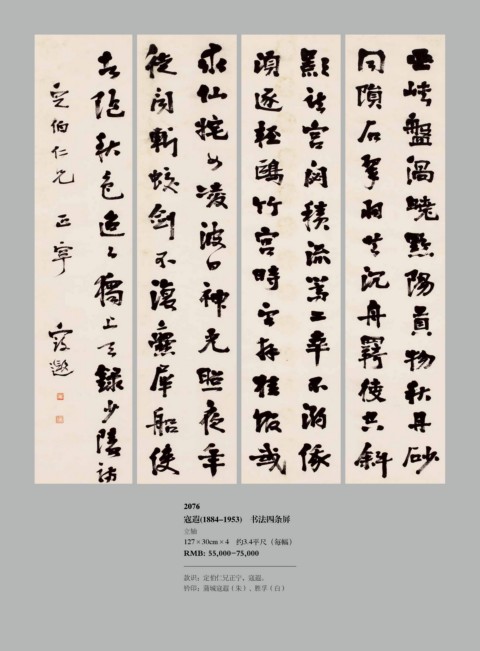 巫峽盤渦曉黔陽貢物秋丹砂
同隕石翠羽共沉舟羈使空斜
影龍宮閟積流篙工幸不溺俄
頃逐輕鷗竹宮時望拜桂館或
求仙姹女凌波日神光照夜年
徒聞斬蛟劍不復爨犀船使
者隨秋色迢迢獨上天 錄少陵詩
定伯仁兄正字 寇遐
2076
寇遐(1884-1953) 书法四条屏
立轴
127×30cm×4 约3.4平尺（每幅）
RMB: 55,000-75,000
款识：定伯仁兄正字，寇遐。
钤印：蒲城寇遐（朱）、胜浮（白）